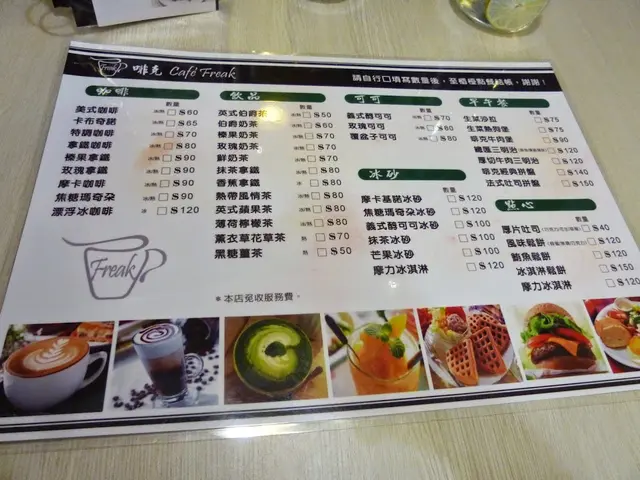 Freak
啡克 Café Freak
請自行口填寫數量後，至櫃檯點餐結帳，謝謝！
咖啡
數量
美式咖啡 冰/熱 □ $60
卡布奇諾 冰/熱 □ $65
特調咖啡 冰/熱 □ $70
拿鐵咖啡 冰/熱 □ $80
榛果拿鐵 冰/熱 □ $90
玫瑰拿鐵 冰/熱 □ $90
摩卡咖啡 冰/熱 □ $90
焦糖瑪奇朵 冰/熱 □ $90
漂浮冰咖啡 冰 □ $120
Freak
飲品
數量
英式伯爵茶 冰/熱 □ $50
伯爵奶茶 冰/熱 □ $60
榛果奶茶 冰/熱 □ $70
玫瑰奶茶 冰/熱 □ $70
鮮奶茶 冰/熱 □ $70
抹茶拿鐵 冰/熱 □ $80
香蕉拿鐵 冰/熱 □ $80
熱帶風情茶 冰/熱 □ $80
英式蘋果茶 冰/熱 □ $80
薄荷檸檬茶 冰/熱 □ $80
薰衣草花草茶 熱 □ $70
黑糖薑茶 熱 □ $50
*本店免收服務費。
可可
數量
義式醇可可 冰/熱 □ $70
玫瑰可可 冰/熱 □ $80
覆盆子可可 冰/熱 □ $80
冰砂
數量
摩卡基諾冰砂 □ $120
焦糖瑪奇朵冰砂 □ $120
義式醇可可冰砂 □ $100
抹茶冰砂 □ $100
芒果冰砂 □ $100
摩力冰淇淋 □ $120
早午餐
數量
生菜沙拉 □ $75
生菜熱狗堡 □ $75
菲克牛肉堡 □ $90
總匯三明治 □ $120
厚切牛肉三明治 □ $120
菲克經典拼盤 □ $140
法式吐司拼盤 □ $150
點心
數量
厚片吐司 □ $40
風味鬆餅 □ $90
鮪魚鬆餅 □ $120
冰淇淋鬆餅 □ $150
摩力冰淇淋 □ $120